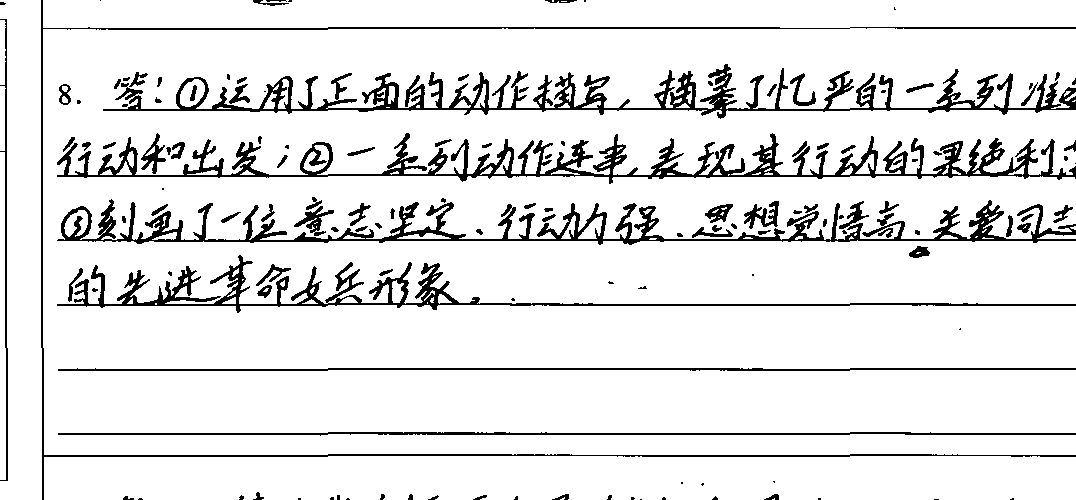 8. 答：①运用了正面的动作描写，描摹了忆严的一系列准备
行动和出发；②一系列动作连串，表现其行动的果绝利落
③刻画了一位意志坚定、行动力强、思想觉悟高、关爱同志
的先进革命女兵形象。